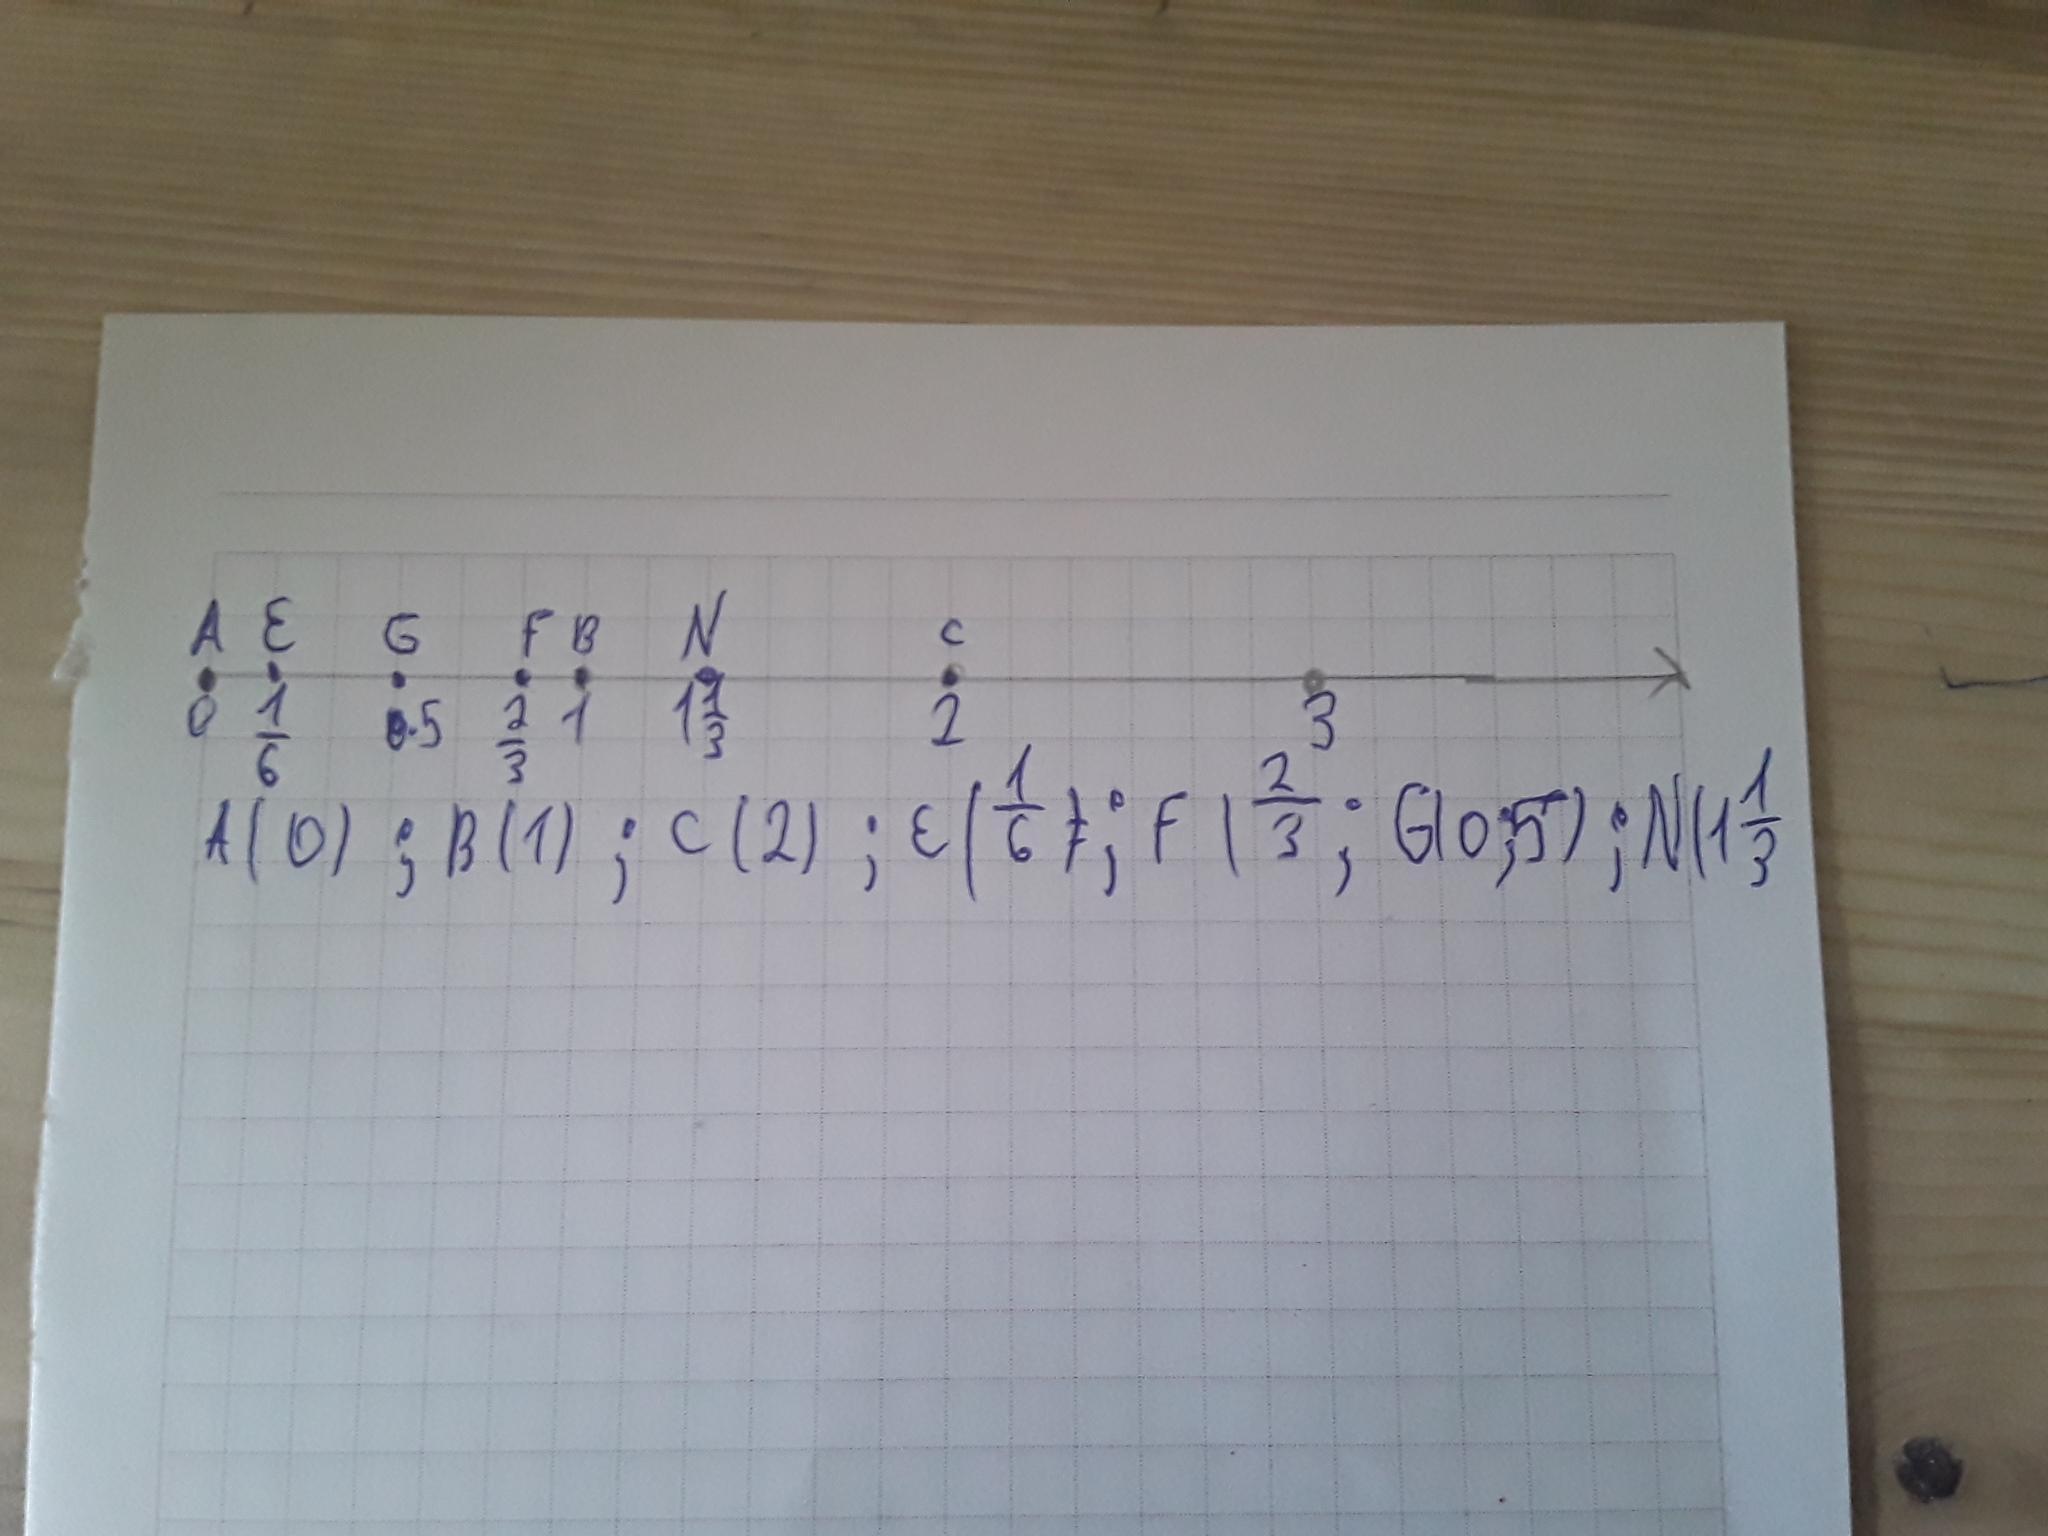 A E G F B N C
0 1/6 0.5 2/3 1 1 1/3 2 3
A(0) ; B(1) ; C(2) ; E(1/6) ; F(2/3 ; G(0,5) ; N(1 1/3